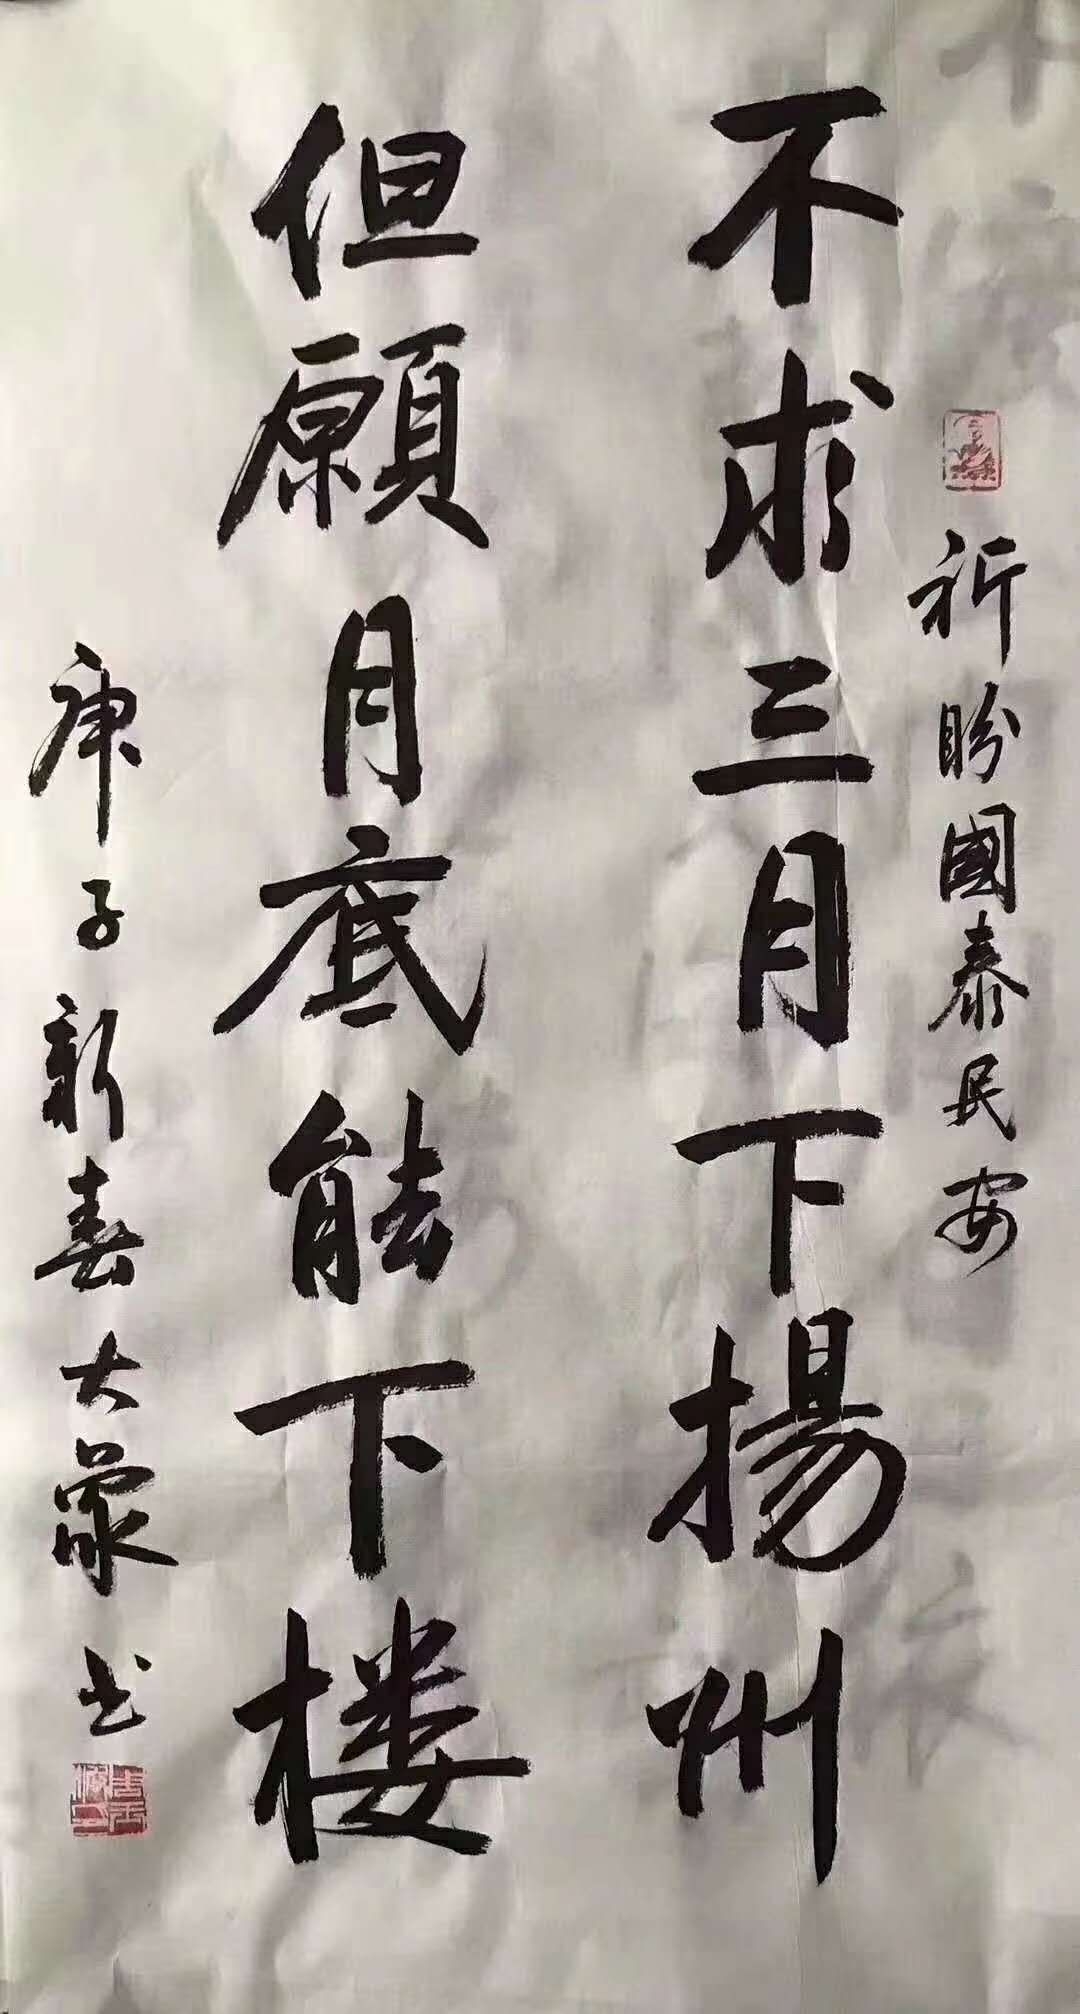 祈盼國泰民安
不求三月下揚州
但願月底能下楼
庚子新春大蒙书